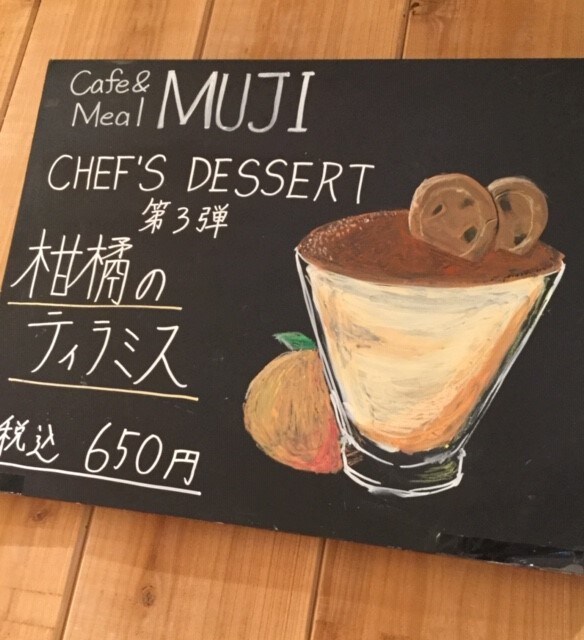 Cafe&
Meal MUJI
CHEF'S DESSERT
第3弾
柑橘の
ティラミス
税込 650円